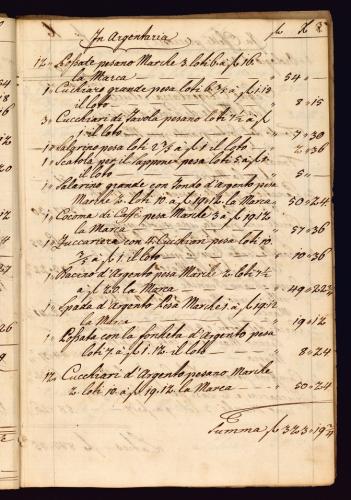 In Argentaria f x 8
12 „ Possate pesano Marche 3. loti 6 a f 16
la Marca „ 54 „
1 „ Cuchiaro grande pesa loti 6 3/4 a f 1.12
il loto „ 8 „ 15
3 „ Cucchiari di Tavola pesano loti 7 1/2 a f
1 il loto „ 7 „ 30
1 „ Salarino pesa loti 2 3/5 a f 1 il loto „ 2 „ 36
1 „ Scatola per il sappone pesa loti 5 a f 1
il loto „ 5 „
1 „ Salarino grande con Fondo d'Argento pesa
Marche 2 loti 10. a f 19.12 la Marca „ 50 „ 24
1 „ Cocoma di Caffè pesa Marche 3 a f 19.12
la Marca „ 57 „ 36
1 „ Zuccariera con Cucchiari pesa loti 10.
3/5 a f 1 il loto „ 10 „ 36
1 „ Bacino d'Argento pesa Marche 2 loti 7 1/2
a f 20 la Marca „ 49 „ 22 2/4
1 „ Spada d'Argento Pesa Marche 1. a f 19.12
la Marca „ 19 „ 12
1 „ Possata con la forcheta d'Argento pesa
loti 7. a f 1.12 il loto „ 8 „ 24
12 „ Cucchiari d'Argento pesano Marche
2 loti 10. a f 19.12. la Marca „ 50 „ 24
Summa f 323 „ 19 2/4